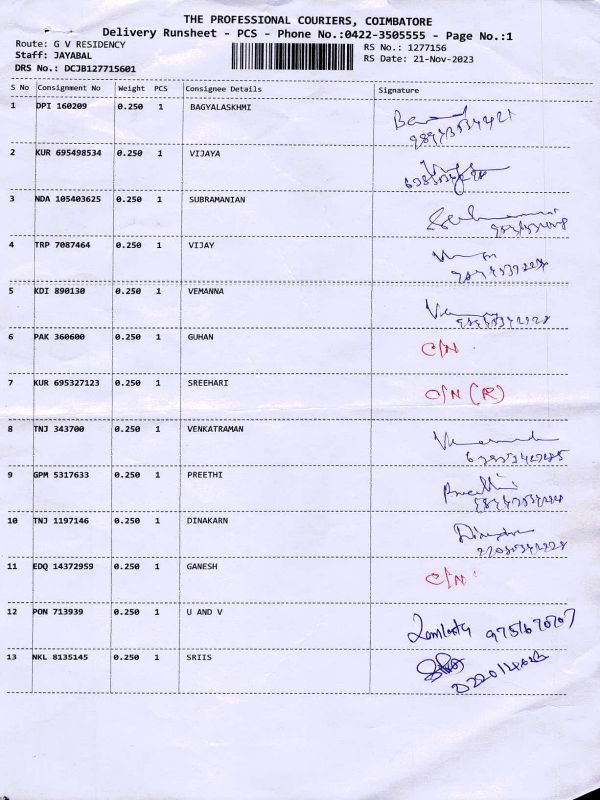 THE PROFESSIONAL COURIERS, COIMBATORE
Delivery Runsheet - PCS - Phone No.:0422-3505555 - Page No.:1
Route: G V RESIDENCY RS No.: 1277156
Staff: JAYABAL RS Date: 21-Nov-2023
DRS No.: DCJB127715601
S No Consignment No Weight PCS Consignee Details Signature
1 DPI 160209 0.250 1 BAGYALASKHMI
2 KUR 695498534 0.250 1 VIJAYA
3 NDA 105403625 0.250 1 SUBRAMANIAN
4 TRP 7087464 0.250 1 VIJAY
5 KDI 890130 0.250 1 VEMANNA
6 PAK 360600 0.250 1 GUHAN C/N
7 KUR 695327123 0.250 1 SREEHARI O/N (R)
8 TNJ 343700 0.250 1 VENKATRAMAN
9 GPM 5317633 0.250 1 PREETHI
10 TNJ 1197146 0.250 1 DINAKARN
11 EDQ 14372959 0.250 1 GANESH C/N
12 PON 713939 0.250 1 U AND V
13 NKL 8135145 0.250 1 SRIIS